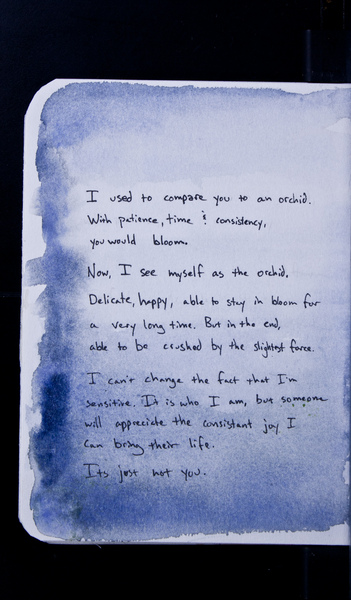 I used to compare you to an orchid.
With patience, time & consistency,
you would bloom.
Now, I see myself as the orchid.
Delicate, happy, able to stay in bloom for
a very long time. But in the end,
able to be crushed by the slightest force.
I can't change the fact that I'm
sensitive. It is who I am, but someone
will appreciate the consistant joy I
can bring their life.
Its just not you.